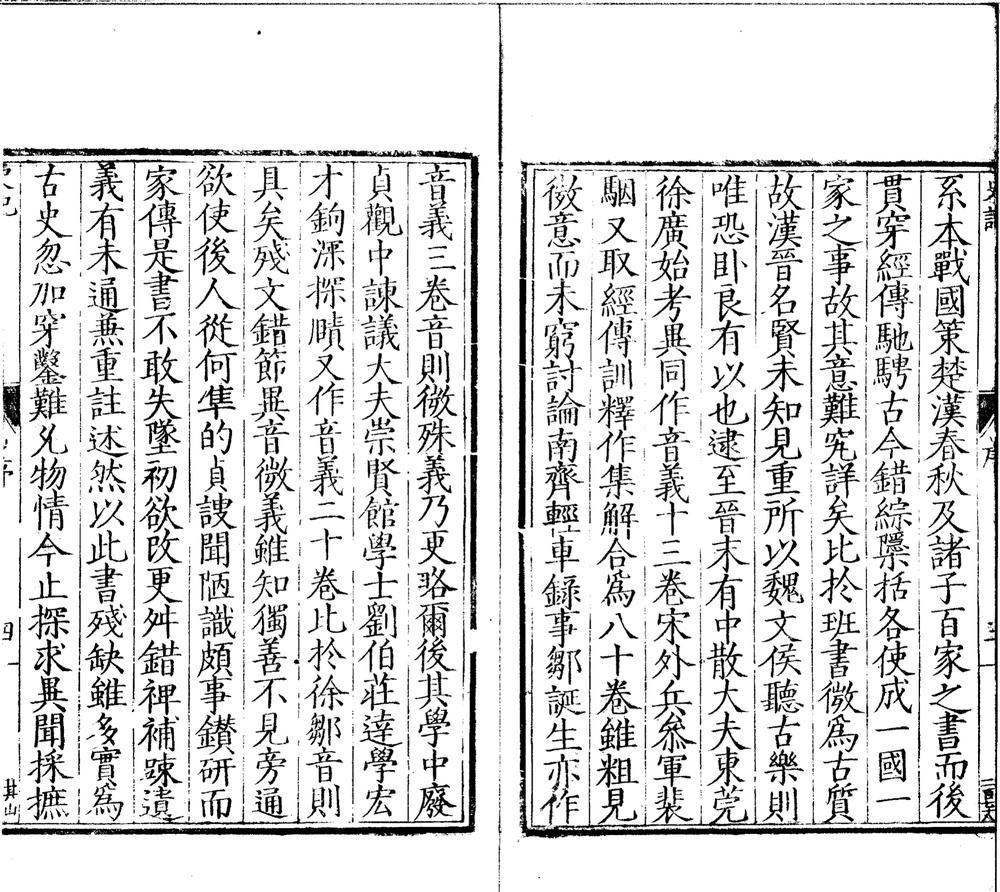 系本戰國策楚漢春秋及諸子百家之書而後
貫穿經傳馳騁古今錯綜櫽括各使成一國一
家之事故其意難究詳矣比於班書微為古質
故漢晉名賢未知見重所以魏文侯聽古樂則
唯恐卧良有以也逮至晉末有中散大夫東莞
徐廣始考異同作音義十三卷宋外兵叅軍裴
駰又取經傳訓釋作集解合為八十卷雖粗見
微意而未窮討論南齊輕車録事鄒誕生亦作
音義三卷音則微殊義乃更略爾後其學中廢
貞觀中諫議大夫崇賢館學士劉伯莊達學宏
才鉤深探賾又作音義二十卷比於徐鄒音則
具矣殘文錯節異音微義雖知獨善不見旁通
欲使後人從何準的貞謏聞陋識頗事鑚研而
家傳是書不敢失墜初欲改更舛錯裨補踈遺
義有未通兼重註述然以此書殘缺雖多實為
古史忽加穿鑿難允物情今止探求異聞採摭